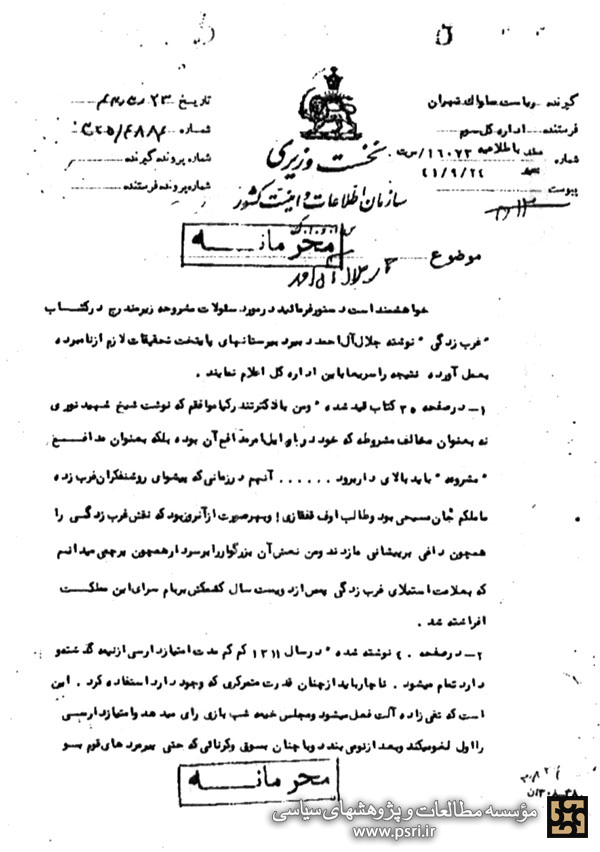 گیرنده ریاست ساواک تهران
فرستنده اداره کل سوم
شماره
پیوست
تاریخ
شماره
شماره پرونده گیرنده
شماره پرونده فرستنده
نخست وزیری
سازمان اطلاعات و امنیت کشور
محرمانه
موضوع جلال آل احمد
خواهشمند است دستور فرمائید در مورد سئولات مشروحه زیر مندرج در کتاب
"غرب زدگی" نوشته جلال آل احمد دبیر دبیرستانهای پایتخت تحقیقات لازم از نامبرده
بعمل آورده نتیجه را سریعا باین اداره کل اعلام نمایند .
۱- در صفحه ۳۵ کتاب قید شده "ومن با دکتر تندرکیا موافقم که نوشت شیخ شهید نوری
نه بعنوان مخالف مشروطه که خود در اوایل امر مدافع آن بوده بلکه بعنوان مدافع
"مشروعه" باید بالای دار برود ...... آنهم در زمانی که پیشوای روشنفکران غرب زده
ما ملکم خان مسیحی بود و طالب اوف قفقازی ! وبهر صورت از آنروز بود که نقش غرب زدگی را
همچون داغی بر پیشانی ما زدند ومن نعش آن بزرگوار را بر سر دار همچون پرچمی میدانم
که بعلامت استیلای غرب زدگی پس از دویست سال کشمکش بر بام سرای این مملکت
افراشته شد .
۲- در صفحه ۴۰ نوشته شده "در سال ۱۳۱۱ کم کم مدت امتیاز دارسی از نیمه گذشته و
دارد تمام میشود . ناچار باید از چنان قدرت متمرکزی که وجود دارد استفاده کرد . این
است که تقی زاده آلت فعل میشود و مجلس خیمه شب بازی رای میدهد و امتیاز دارسی
را اول لغو میکند و بعد از نو می بندد و با چنان بوق و کرنائی که حتی پیرمردهای قوم بو
محرمانه
مؤسسه مطالعات و پژوهشهای سیاسی
www.psri.ir